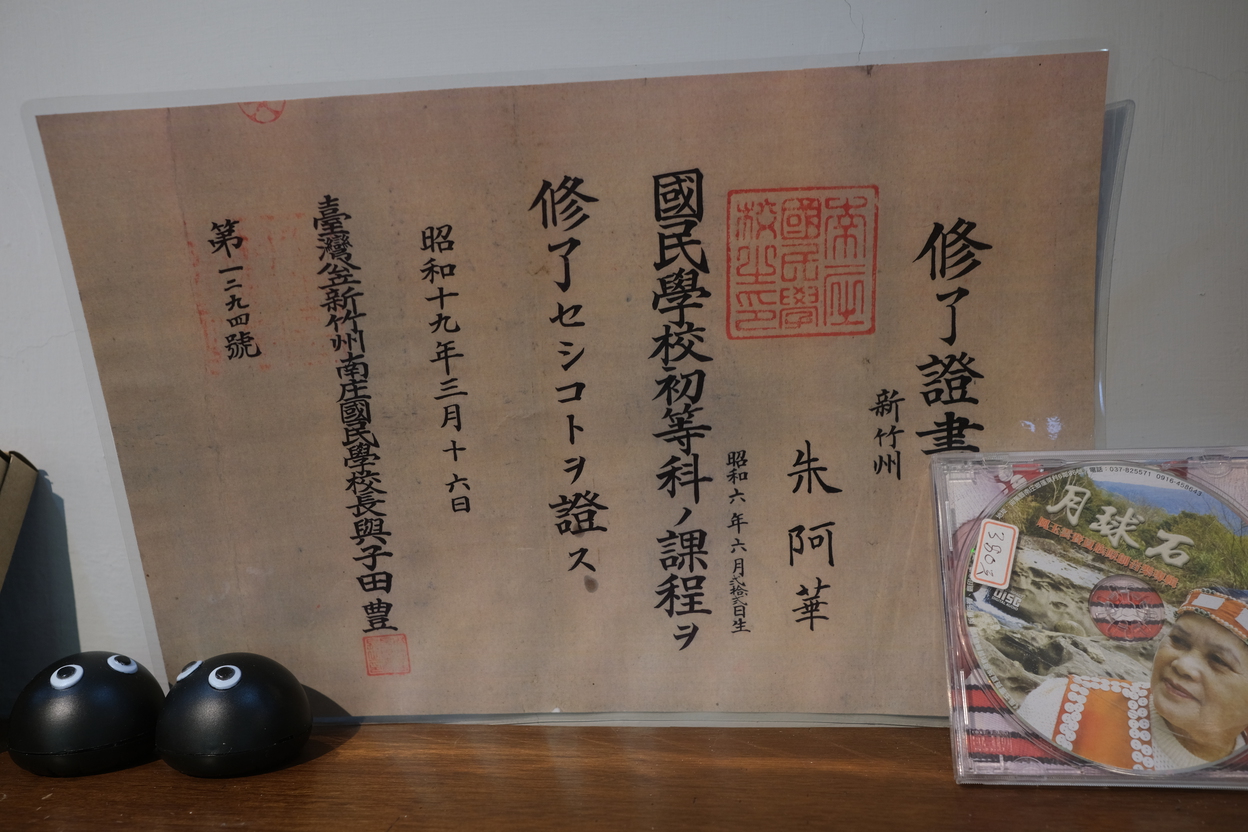 修了證書
新竹州
朱阿華
昭和六年六月弐拾弐日生
南庄國民學校之印
國民學校初等科ノ課程ヲ
修了セシコトヲ證ス
昭和十九年三月十六日
臺灣公立新竹州南庄國民學校長與子田豊
第一二九四號
電話:037-825571
月球石
380元